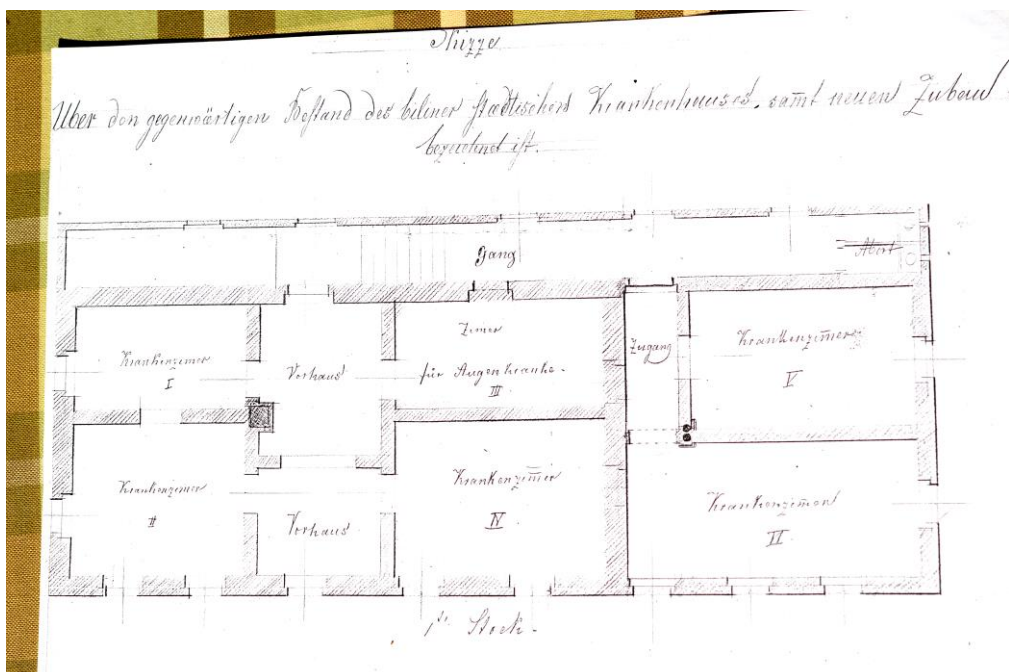 Skizze
Über den gegenwärtigen Bestand des biliner städtischen Krankenhauses, samt neuen Zubau
bezeichnet ist.
Gang
Abort
Krankenzimer
I
Vorhaus
Zimer
für Augenkranke.
III
Zugang
Krankenzim̄er
V
Krankenzimer
II
Vorhaus
Krankenzim̄er
IV
Krankenzim̄er
1ter Stock.